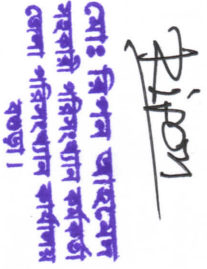 Ripon
মোঃ রিপন আহম্মেদ
সহকারী পরিসংখ্যান কর্মকর্তা
জেলা পরিসংখ্যান কার্যালয়
বগুড়া।